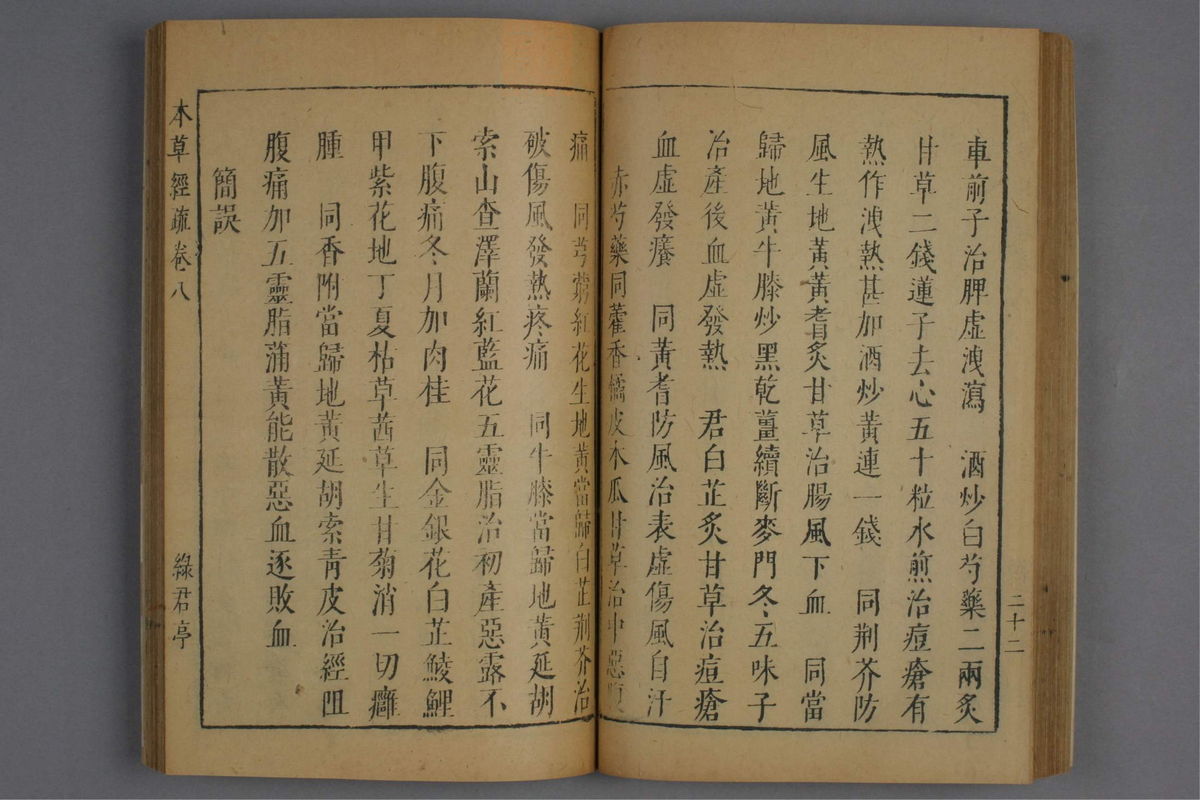 二十二
車前子治脾虛洩瀉　酒炒白芍藥二兩炙
甘草二錢蓮子去心五十粒水煎治痘瘡有
熱作洩熱甚加酒炒黃連一錢　同荆芥防
風生地黃黃耆炙甘草治腸風下血　同當
歸地黃牛膝炒黑乾薑續斷麥門冬五味子
治產後血虛發熱　君白芷炙甘草治痘瘡
血虛發癢　同黃耆防風治表虛傷風自汗
赤芍藥同藿香橘皮木瓜甘草治中惡
痛　同芎藭紅花生地黃當歸白芷荆芥治
破傷風發熱疼痛　同牛膝當歸地黃延胡
索山查澤蘭紅藍花五靈脂治初產惡露不
下腹痛冬月加肉桂　同金銀花白芷鯪鯉
甲紫花地丁夏枯草茜草生甘菊消一切癰
腫　同香附當歸地黃延胡索青皮治經阻
腹痛加五靈脂蒲黃能散惡血逐敗血
簡誤
本草經疏卷八
綠君亭